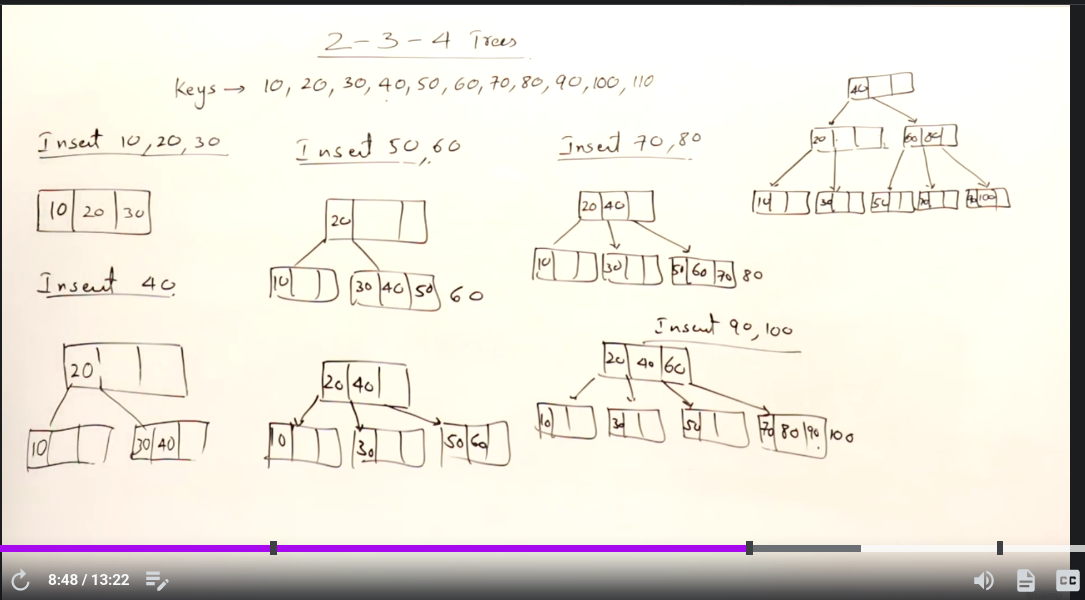 2-3-4 Trees
Keys → 10, 20, 30, 40, 50, 60, 70, 80, 90, 100, 110
Insert 10, 20, 30
10 20 30
Insert 40
20
10 30 40
Insert 50, 60
20
10 30 40 50 60
20 40
10 30 50 60
Insert 70, 80
20 40
10 30 50 60 70 80
Insert 90, 100
20 40 60
10 30 50 70 80 90 100
40
20 60 80
10 30 50 70 90 100
8:48 / 13:22
CC